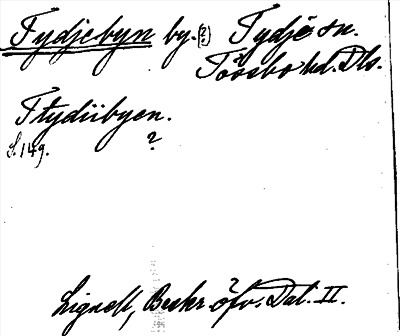 Tydjebyn by. (?) Tydje sn.
Tössbo hd. Dls.
Ttydiibyen.
S. 149. ?
Lignell, Beskr. öfv. Dal. II.